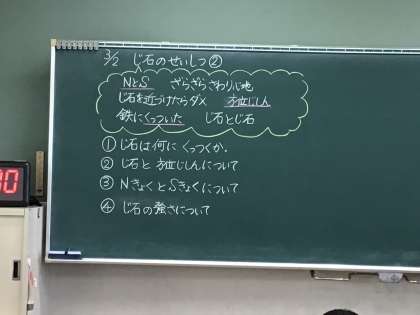 3/2 じ石のせいしつ②
NとS ざらざら さわり心地
じ石を近づけたらダメ 方位じしん
鉄にくっついた じ石とじ石
①じ石は何に くっつくか.
②じ石と方位じしんについて
③NきょくとSきょくについて
④じ石の強さについて